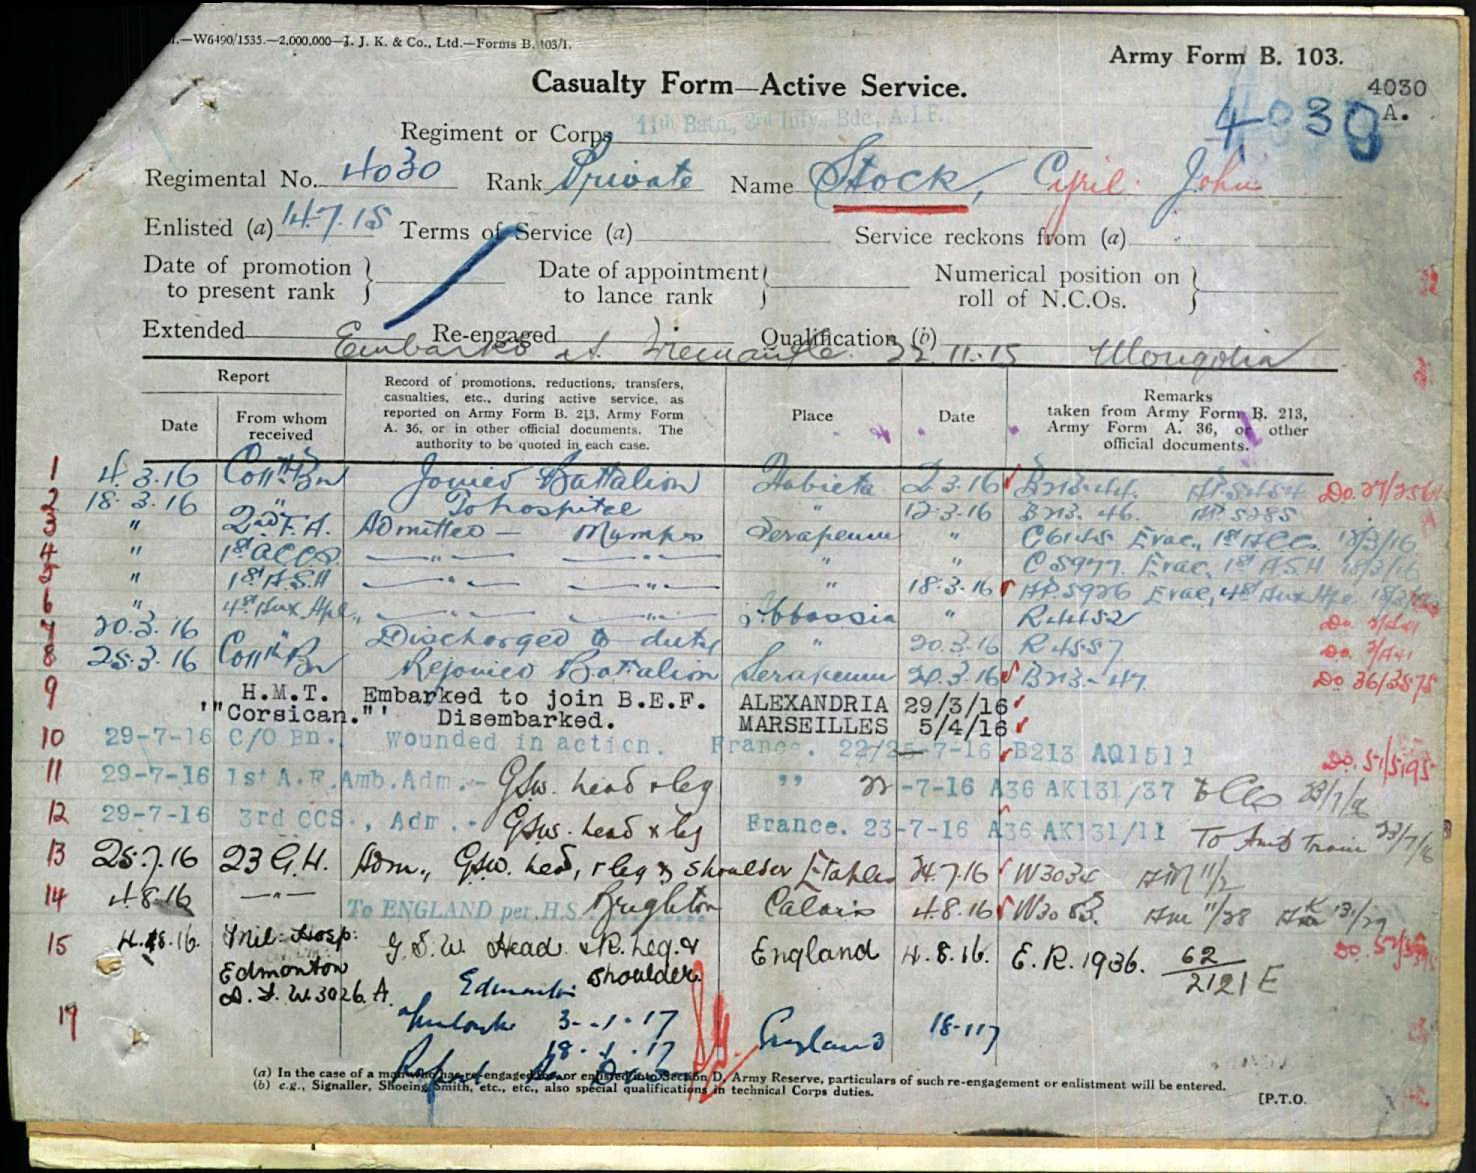 —W6490/1535.—2,000,000—J. J. K. & Co., Ltd.—Forms B. 103/1.
Army Form B. 103.
Casualty Form—Active Service.
4030
A.
4030
Regiment or Corps 11th Batn, 3rd Infy. Bde, A.I.F.
Regimental No. 4030 Rank Private Name Stock, Cyril John
Enlisted (a) 14.7.15 Terms of Service (a) Service reckons from (a)
Date of promotion to present rank } Date of appointment to lance rank } Numerical position on roll of N.C.Os. }
Extended Re-engaged Qualification (b)
Embarked at Fremantle 22.11.15 Mongolia
Report
Date
From whom received
Record of promotions, reductions, transfers, casualties, etc., during active service, as reported on Army Form B. 213, Army Form A. 36, or in other official documents. The authority to be quoted in each case.
Place
Date
Remarks taken from Army Form B. 213, Army Form A. 36, or other official documents.
1 4.3.16 Co 11th Bn Joined Battalion Habieta 2.3.16 B213.44.
2 18.3.16 " To hospital " 12.3.16 B213.46.
3 " 2nd F.A. Admitted — Mumps Serapeum " C6145 Evac. 1st ACCS 18/3/16
4 " 1st ACCS —"— —"— " " C5977 Evac. 1st ASH 18/3/16
5 " 1st A.S.H —"— —"— " 18.3.16 Evac, 4th Aux Hpl
6 " 4th Aux Hpl., —"— —"— Abbassia " R4452
7 20.3.16 Discharged to duty " 20.3.16 R4557
8 25.3.16 Co 11th Bn Rejoined Battalion Serapeum 20.3.16 B213-47 Do 36/3575
9 H.M.T. "Corsican." Embarked to join B.E.F. ALEXANDRIA 29/3/16
Disembarked. MARSEILLES 5/4/16
10 29-7-16 C/O Bn., wounded in action. France. 22/25-7-16 B213 AQ1511 Do. 51/5195
11 29-7-16 1st A.F.Amb. Adm.- GSW. head & leg " 22-7-16 A36 AK131/37 To CCS 23/7/16
12 29-7-16 3rd CCS., Adm.- GSWs. head & leg France. 23-7-16 A36 AK131/11 To Amb Train 23/7/16
13 25.7.16 23 G.H. Adm., GSW. head, r leg & shoulder Etaples 24.7.16 W3034
14 4.8.16 —"— To ENGLAND per. H.S. Brighton Calais 4.8.16 W3083.
15 4.8.16. Mil: Hosp: Edmonton A.F.W.3026.A. G.S.W Head & R. Leg. & shoulder England 4.8.16. E.R.1936. 62/2121 E
Edmonton
17 3-.1.17
18.1.17 England 18-1-17
(a) In the case of a man who has re-engaged for, or enlisted into Section D, Army Reserve, particulars of such re-engagement or enlistment will be entered.
(b) e.g., Signaller, Shoeing Smith, etc., etc., also special qualifications in technical Corps duties.
[P.T.O.